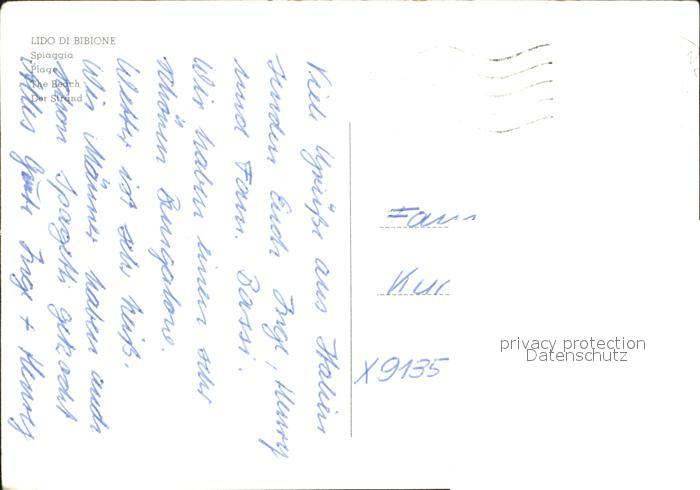 LIDO DI BIBIONE
Spiaggia
Plage
The Beach
Der Strand
Viele Grüße aus Italien
senden Euch Inge, Henry
und Fam. Bassi.
Wir haben einen sehr
schönen Bungalow.
Wetter ist sehr heiß.
Wir Männer haben auch
schon Spagetti gekocht
Alles Gute Inge + Henry
Fam
Kur
X9135
privacy protection
Datenschutz